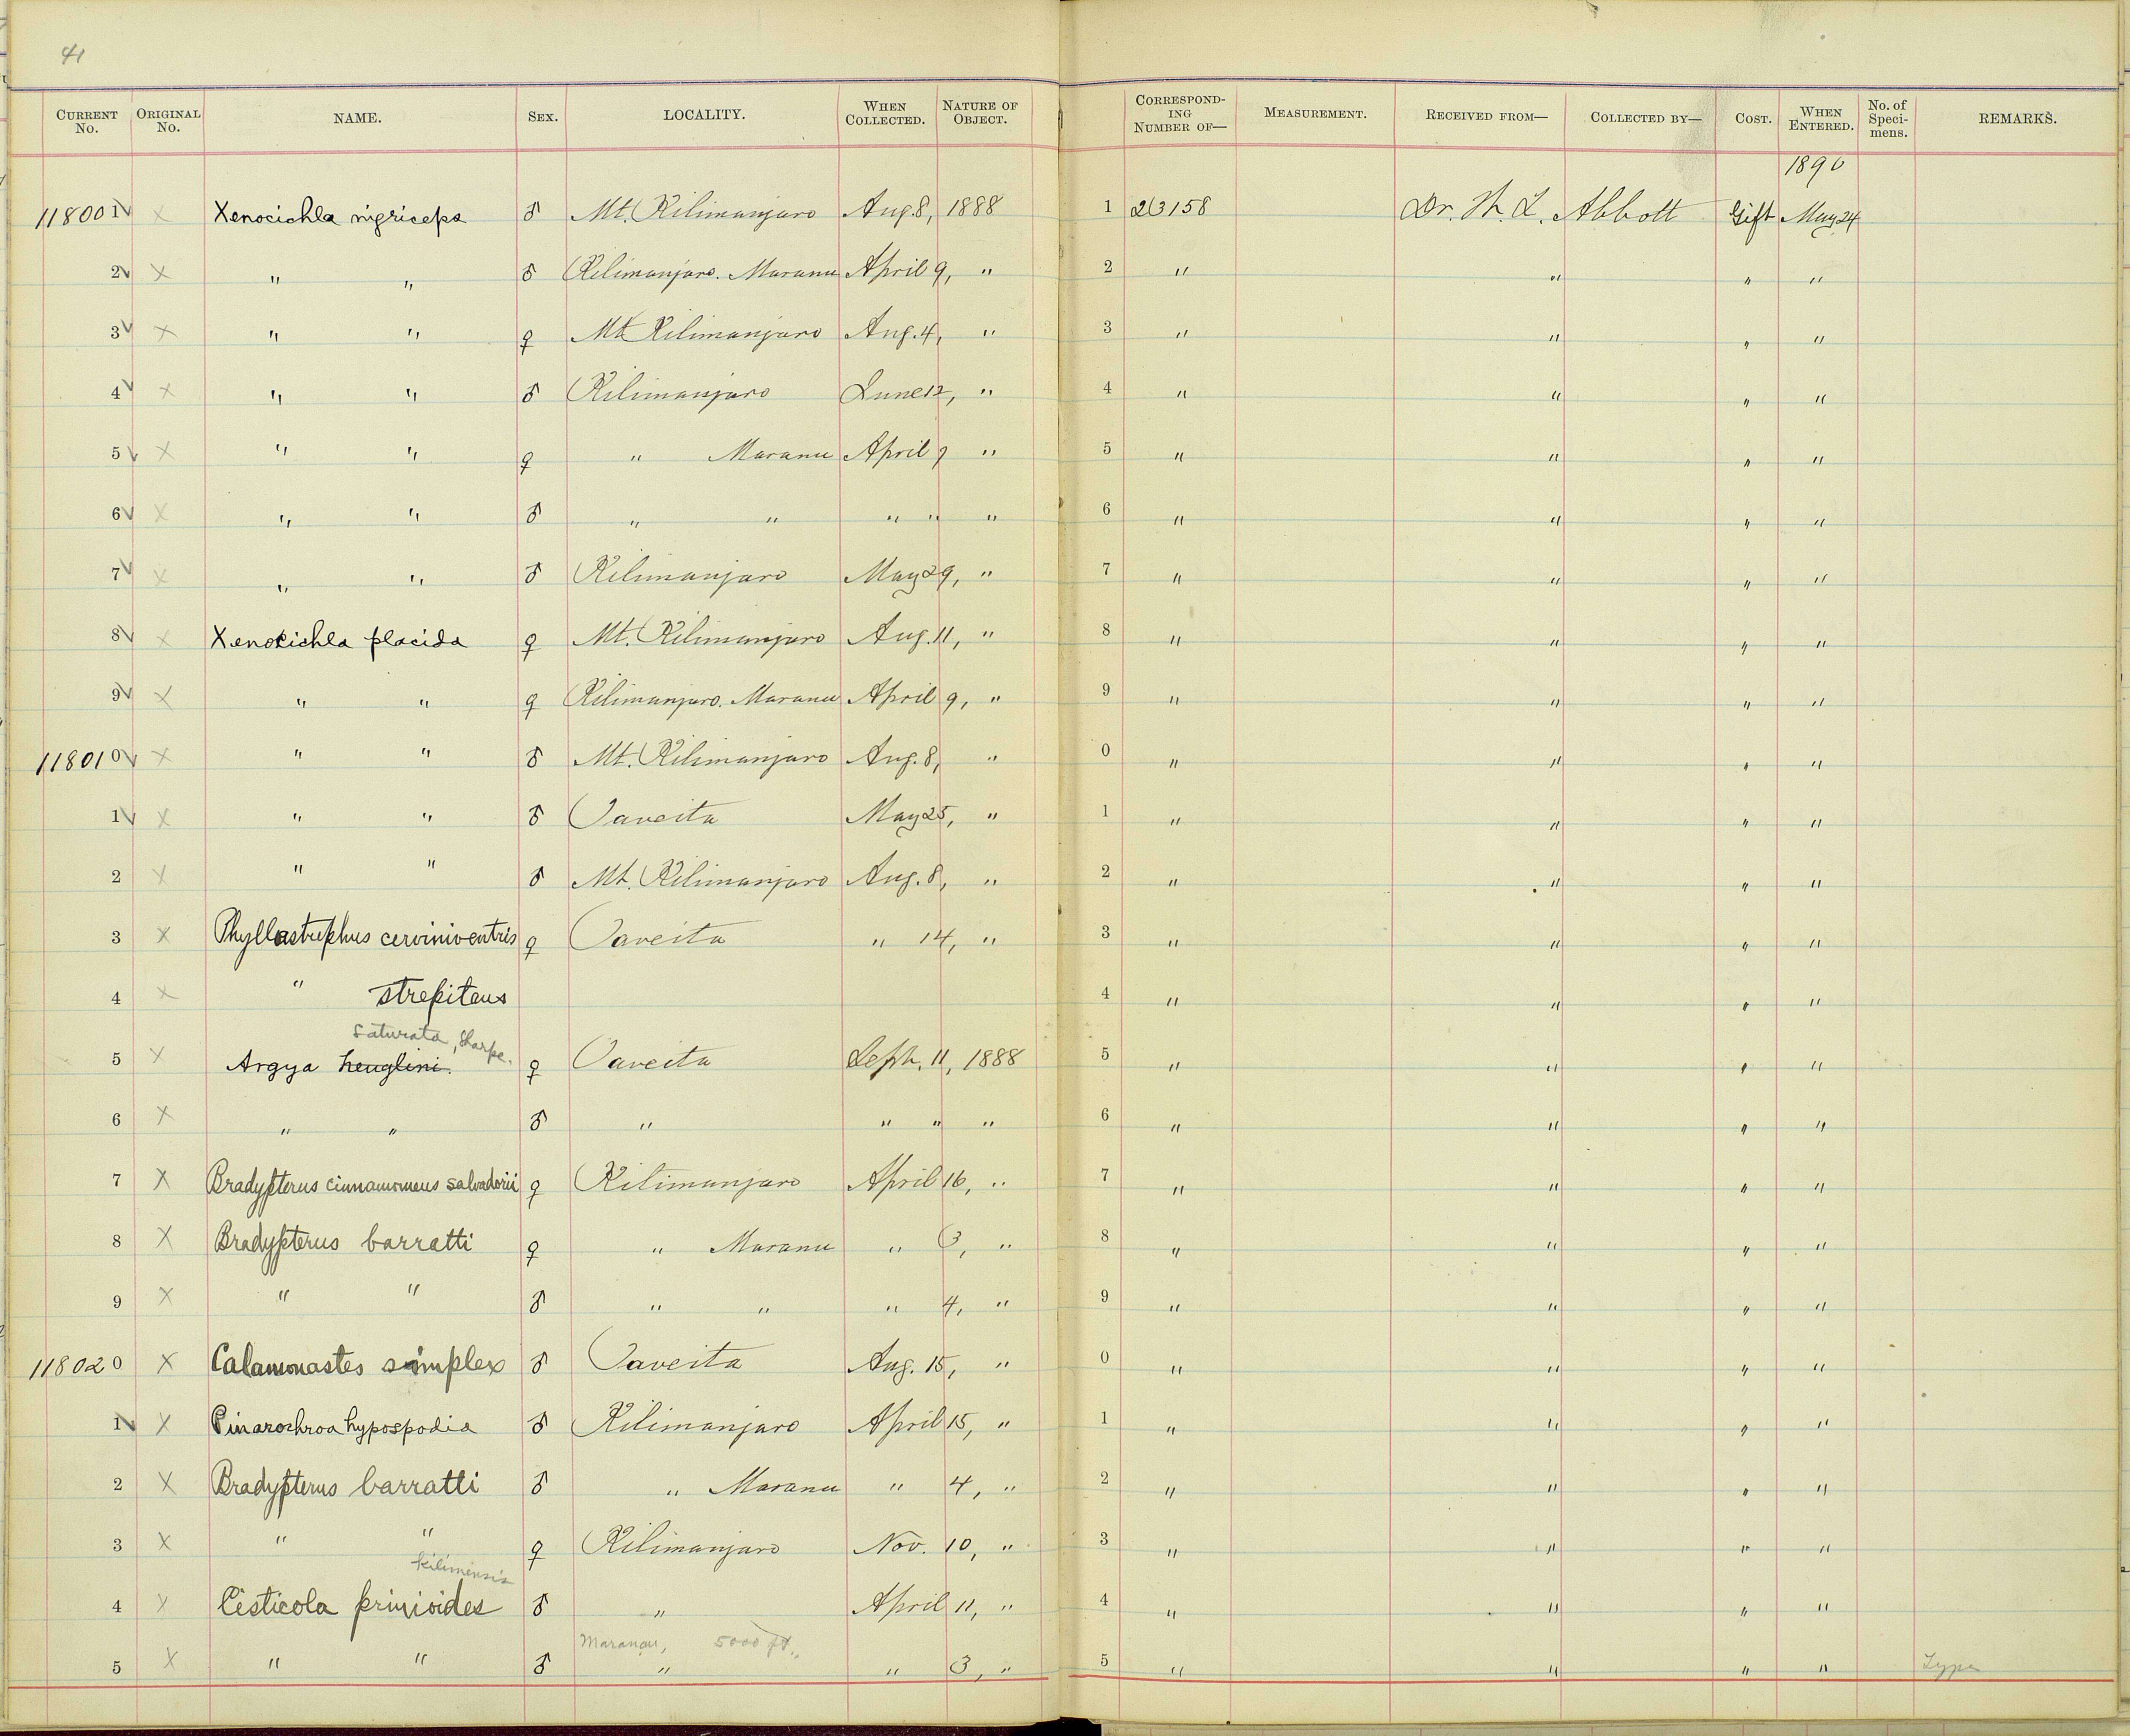 41
CURRENT No. ORIGINAL No. NAME. SEX. LOCALITY. WHEN COLLECTED. NATURE OF OBJECT. CORRESPOND-ING NUMBER OF— MEASUREMENT. RECEIVED FROM— COLLECTED BY— COST. WHEN ENTERED. No. of Speci-mens. REMARKS.
1890
118001 ✓ × Xenocichla nigriceps ♂ Mt. Kilimanjaro Aug. 8, 1888 1 23158 Dr. W. L. Abbott Gift May 24
2 ✓ × " " ♂ Kilimanjaro. Maranu April 9, " 2 " " " "
3 ✓ × " " ♀ Mt. Kilimanjaro Aug. 4, " 3 " " " "
4 ✓ × " " ♂ Kilimanjaro June 12, " 4 " " " "
5 ✓ × " " ♀ " Maranu April 9 " 5 " " " "
6 ✓ × " " ♂ " " " " " 6 " " " "
7 ✓ × " " ♂ Kilimanjaro May 29, " 7 " " " "
8 ✓ × Xenocichla placida ♀ Mt. Kilimanjaro Aug. 11, " 8 " " " "
9 ✓ × " " ♀ Kilimanjaro. Maranu April 9, " 9 " " " "
118010 ✓ × " " ♂ Mt. Kilimanjaro Aug. 8, " 0 " " " "
1 ✓ × " " ♂ Taveita May 25, " 1 " " " "
2 × " " ♂ Mt. Kilimanjaro Aug. 8, " 2 " " " "
3 × Phyllastrephus cerviniventris ♀ Taveita " 14, " 3 " " " "
4 × " strepitans 4 " " " "
saturata, Sharpe.
5 × Argya heuglini. ♀ Taveita Sept. 11, 1888 5 " " " "
6 × " " ♂ " " " " 6 " " " "
7 × Bradypterus cinnamomeus salvadorii ♀ Kilimanjaro April 16, " 7 " " " "
8 × Bradypterus barratti ♀ " Maranu " 3, " 8 " " " "
9 × " " ♂ " " " 4, " 9 " " " "
118020 × Calamonastes simplex ♂ Taveita Aug. 15, " 0 " " " "
1 ✓ × Pinarochroa hypospodia ♂ Kilimanjaro April 15, " 1 " " " "
2 × Bradypterus barratti ♂ " Maranu " 4, " 2 " " " "
3 × " " ♀ Kilimanjaro Nov. 10, " 3 " " " "
kilimensis
4 × Cisticola prinioides ♂ " April 11, " 4 " " " "
Maranau, 5000 ft.
5 × " " ♂ " " 3, " 5 " " " " Type